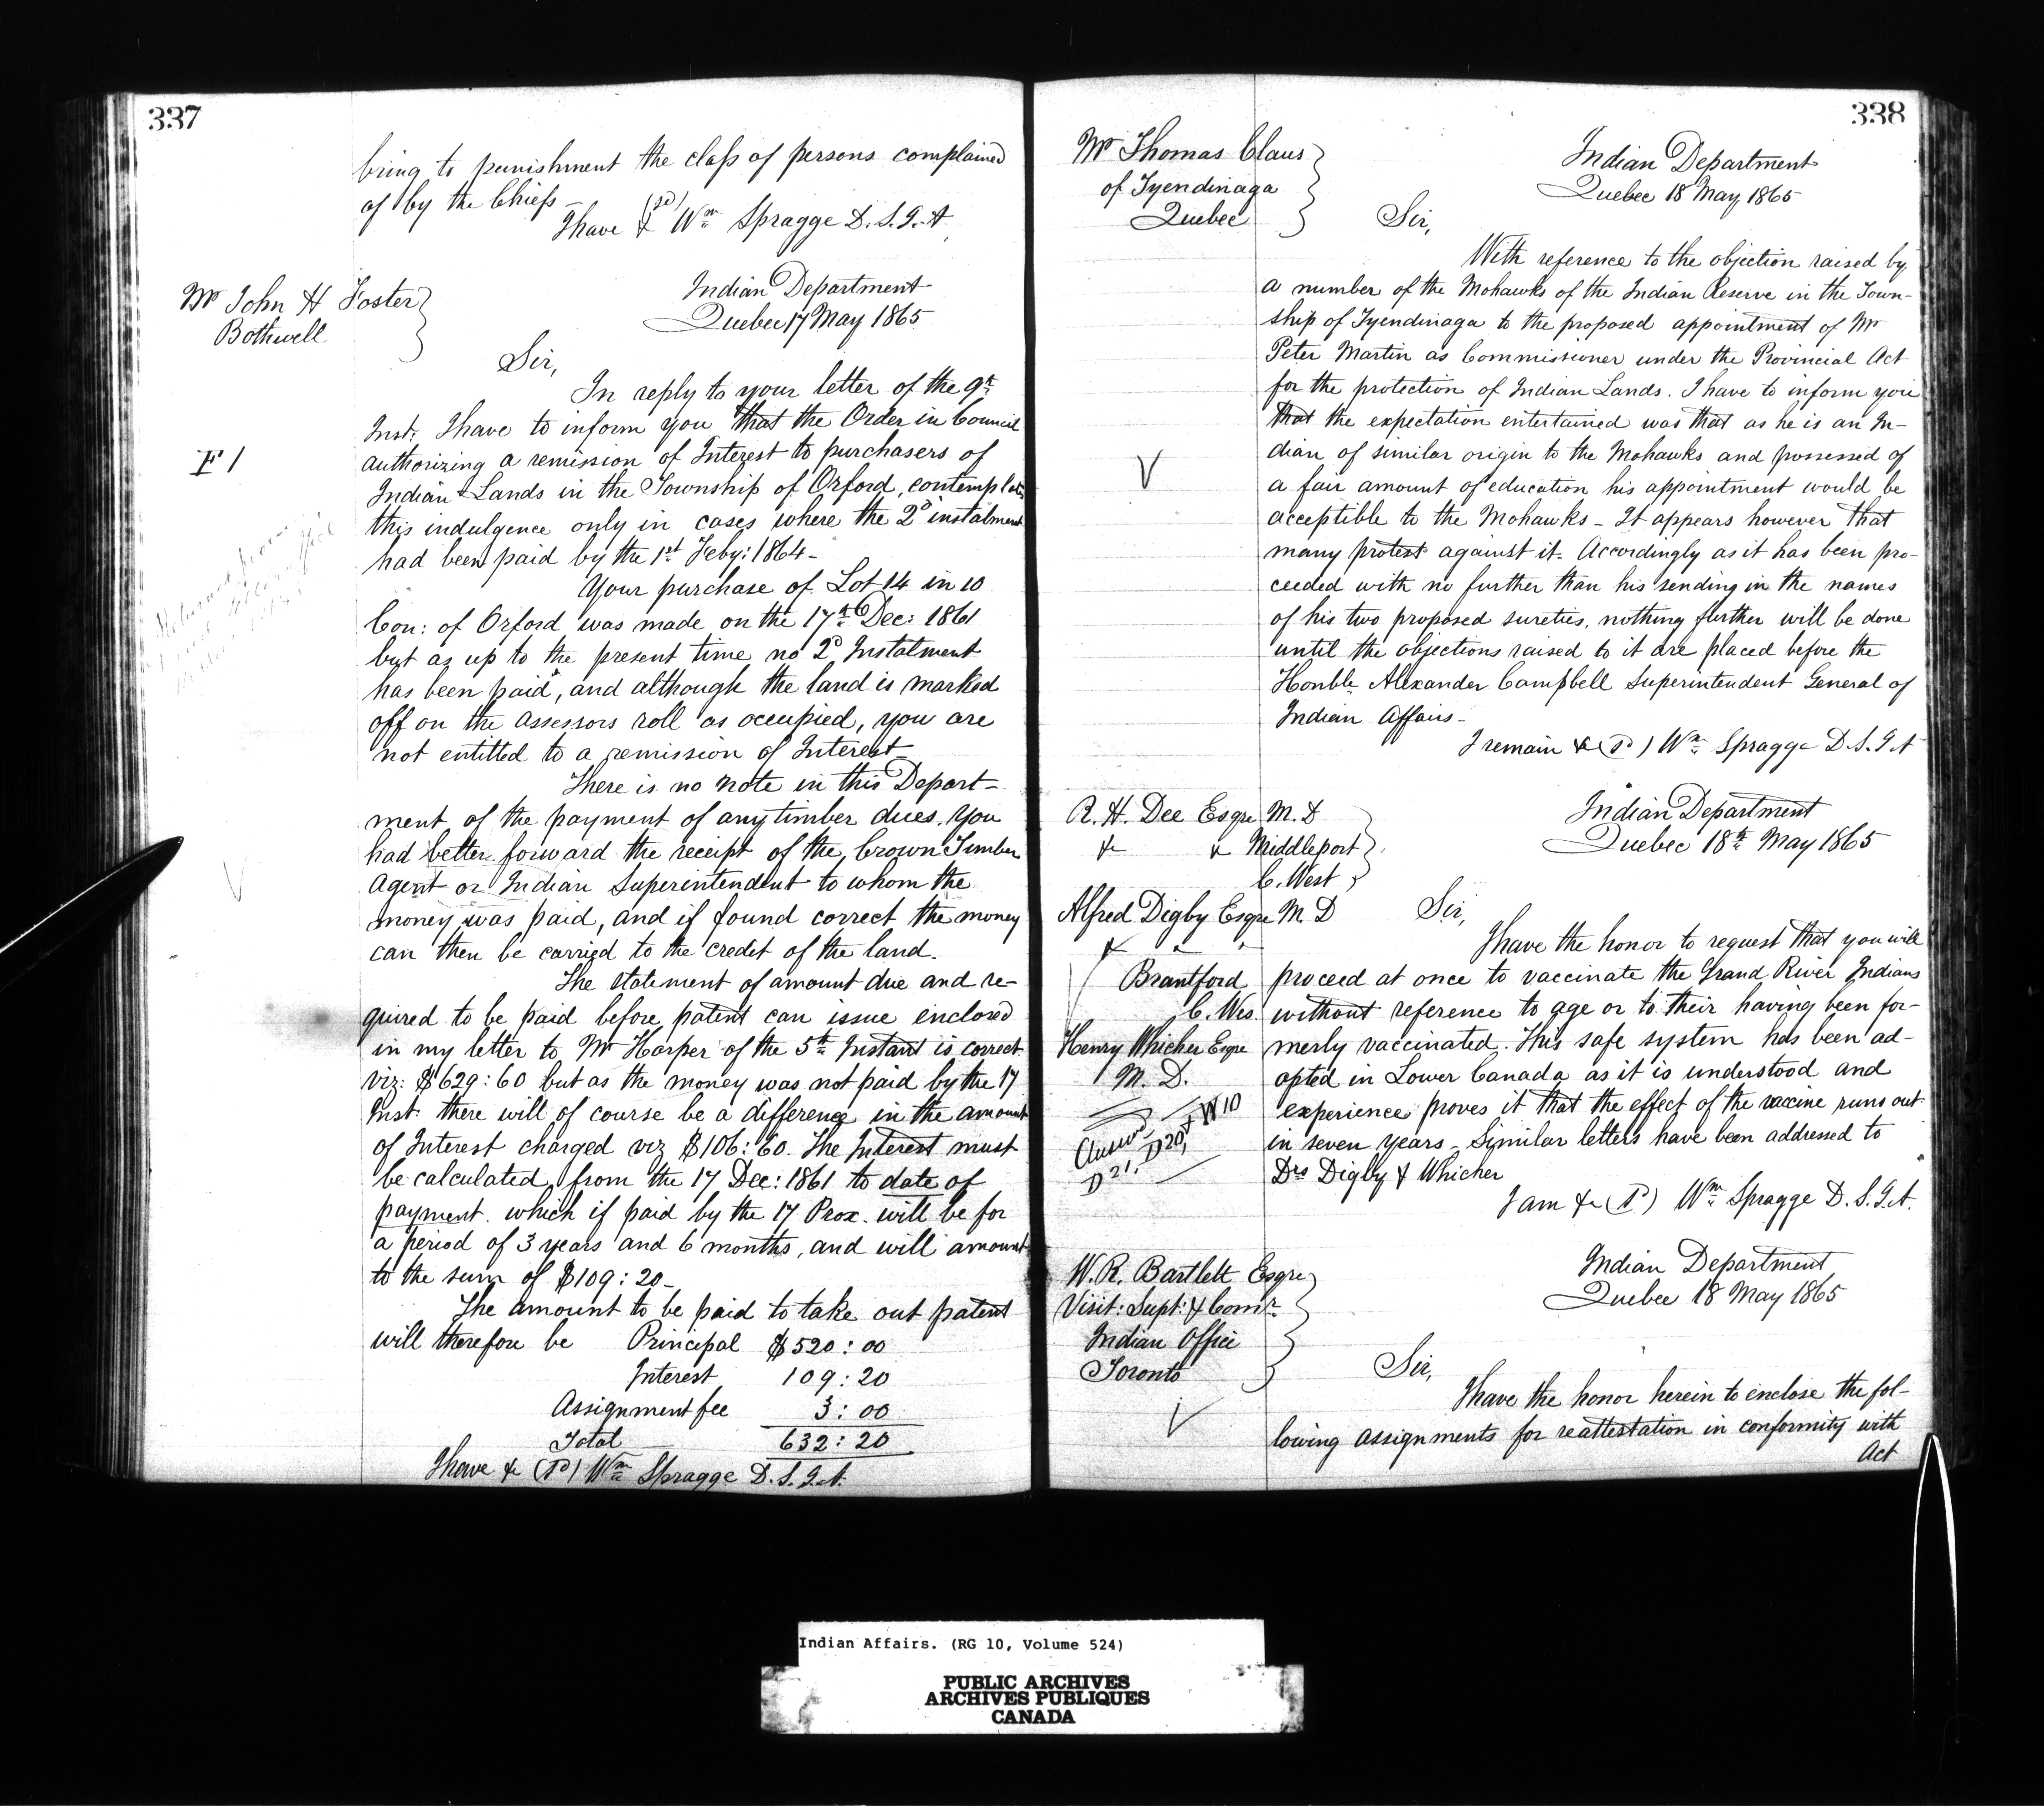 337
bring to punishment the class of persons complained
of by the Chiefs –
I have & (sd) Wm Spragge D. S. I. A
Mr John H Foster
Bothwell
Indian Department
Quebec 17 May 1865
Sir,
In reply to your letter of the 9th
Inst. I have to inform you that the Order in Council
F 1
authorizing a remission of Interest to purchasers of
Indian Lands in the Township of Orford, contemplates
this indulgence only in cases where the 2d instalment
had been paid by the 1st Feby: 1864 –
Your purchase of Lot 14 in 10
Con: of Orford was made on the 17th Dec: 1861
but as up to the present time no 2d Instalment
has been paid, and although the land is marked
off on the assessors roll as occupied, you are
not entitled to a remission of Interest –
There is no note in this Depart–
ment of the payment of any timber dues. You
had better forward the receipt of the Crown Timber
Agent or Indian Superintendent to whom the
money was paid, and if found correct the money
can then be carried to the credit of the land.
The statement of amount due and re–
quired to be paid before patent can issue enclosed
in my letter to Mr Harper of the 5th Instant is correct
viz: $629:60 but as the money was not paid by the 17
Inst. there will of course be a difference in the amount
of Interest charged viz $106:60. The Interest must
be calculated from the 17 Dec: 1861 to date of
payment. which if paid by the 17 Prox. will be for
a period of 3 years and 6 months, and will amount
to the sum of $109:20 –
The amount to be paid to take out patent
will therefore be Principal $520:00
Interest 109:20
Assignment fee 3:00
Total 632:20
I have & (Sd) Wm Spragge D. S. I. A.
338
Mr Thomas Claus
of Tyendinaga
Quebec
Indian Department
Quebec 18 May 1865
Sir,
With reference to the objection raised by
a number of the Mohawks of the Indian Reserve in the Town–
ship of Tyendinaga to the proposed appointment of Mr
Peter Martin as Commissioner under the Provincial Act
for the protection of Indian Lands. I have to inform you
that the expectation entertained was that as he is an In–
dian of similar origin to the Mohawks and possessed of
a fair amount of education his appointment would be
acceptible to the Mohawks – It appears however that
many protest against it. Accordingly as it has been pro–
ceeded with no further than his sending in the names
of his two proposed sureties, nothing further will be done
until the objections raised to it are placed before the
Honble Alexander Campbell Superintendent General of
Indian Affairs –
I remain & (Sd) Wm Spragge D. S. I. A
R. H. Dee Esqre M. D
& & Middleport
C. West
Alfred Digby Esqre M. D
Brantford
C. Wes.
Henry Whicher Esqre
M. D.
Answd D20, & W10
D21,
Indian Department
Quebec 18th May 1865
Sir,
I have the honor to request that you will
proceed at once to vaccinate the Grand River Indians
without reference to age or to their having been for–
merly vaccinated. This safe system has been ad–
opted in Lower Canada as it is understood and
experience proves it that the effect of the vaccine runs out
in seven years – Similar letters have been addressed to
Drs Digby & Whicher
I am & (Sd) Wm Spragge D. S. I. A.
W. R. Bartlett Esqre
Visit: Supt: & Comr
Indian Office
Toronto
Indian Department
Quebec 18 May 1865
Sir,
I have the honor herein to enclose the fol–
lowing assignments for reattestation in conformity with
Act
Indian Affairs. (RG 10, Volume 524)
PUBLIC ARCHIVES
ARCHIVES PUBLIQUES
CANADA